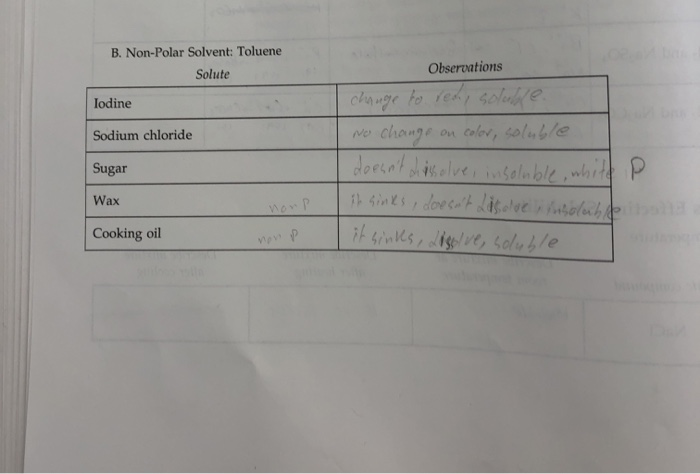 B. Non-Polar Solvent: Toluene
Solute Observations
Iodine change to red, soluble.
Sodium chloride no change on color, soluble
Sugar doesn't dissolve, insoluble, white P
Wax non P it sinks, doesn't disolve, insoluble
Cooking oil non P it sinks, disolve, soluble